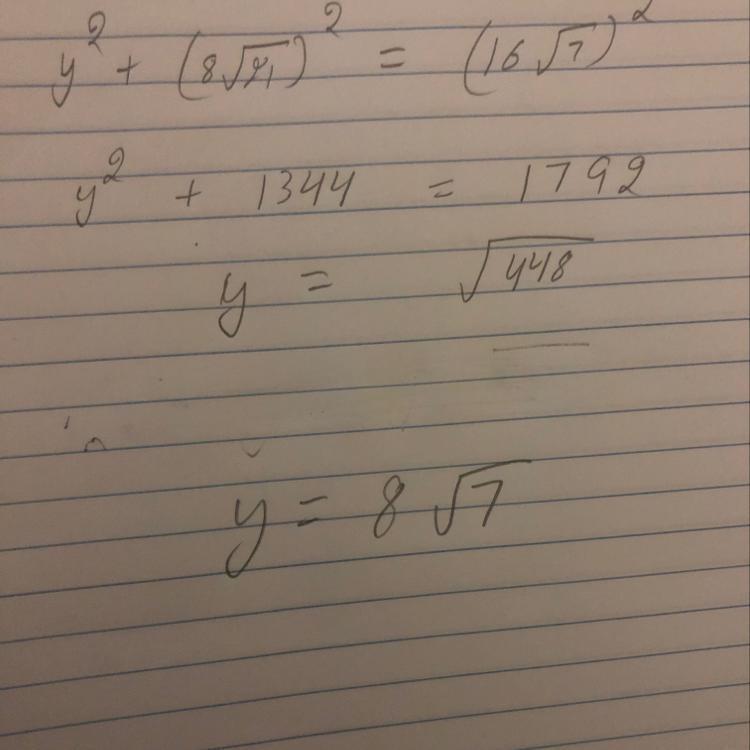 y² + (8√21)² = (16√7)²
y² + 1344 = 1792
y = √448
y = 8√7